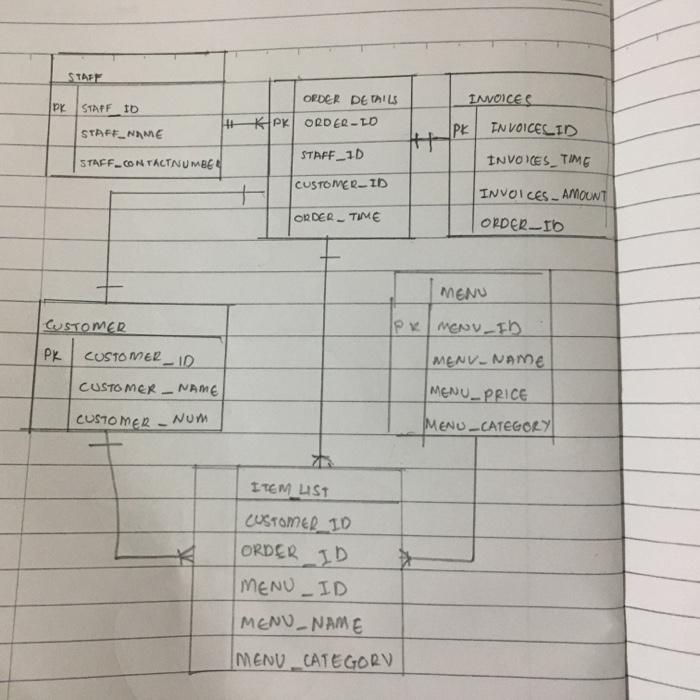 STAFF
PK STAFF_ID
STAFF_NAME
STAFF_CONTACTNUMBER
ORDER DETAILS
PK ORDER-ID
STAFF_ID
CUSTOMER_ID
ORDER_TIME
INVOICES
PK INVOICES_ID
INVOICES_TIME
INVOICES_AMOUNT
ORDER_ID
CUSTOMER
PK CUSTOMER_ID
CUSTOMER_NAME
CUSTOMER_NUM
MENU
PK MENU_ID
MENU_NAME
MENU_PRICE
MENU_CATEGORY
ITEM_LIST
CUSTOMER_ID
ORDER_ID
MENU_ID
MENU_NAME
MENU_CATEGORY